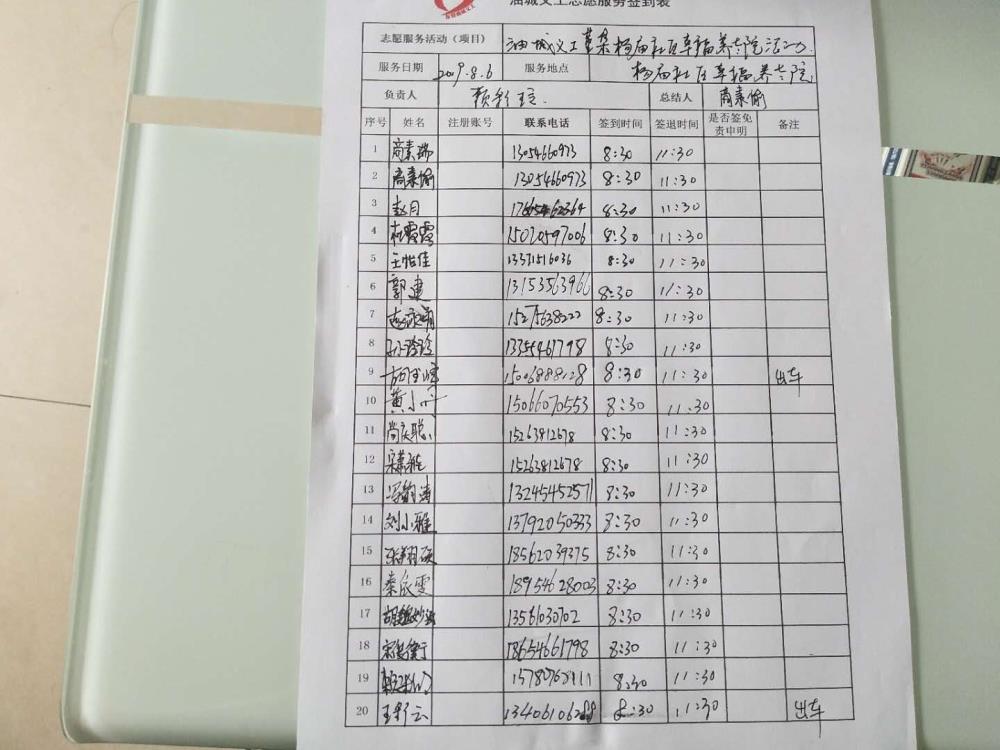 油城义工志愿服务签到表
志愿服务活动（项目） 油城义工 杨庙社区幸福养老院活动
服务日期 2019.8.6 服务地点 杨庙社区幸福养老院
负责人 总结人 商素愉
序号 姓名 注册账号 联系电话 签到时间 签退时间 是否签免责申明 备注
1 商素瑞 13054660973 8:30 11:30
2 商素愉 13054660973 8:30 11:30
3 赵月 8:30 11:30
4 霞霞 15020597006 8:30 11:30
5 王怡佳 13371516036 8:30 11:30
6 郭建 13153563966 8:30 11:30
7 15275638222 8:30 11:30
8 孙玲玲 13355461798 8:30 11:30
9 15006888128 8:30 11:30 出车
10 黄小 15066070553 8:30 11:30
11 尚庆聪 15263812678 8:30 11:30
12 15263812678 8:30 11:30
13 13245452571 8:30 11:30
14 刘小雅 13792050333 8:30 11:30
15 张翔硕 18562039375 8:30 11:30
16 秦依雯 18954628003 8:30 11:30
17 13561030702 8:30 11:30
18 18654661798 8:30 11:30
19 8:30 11:30
20 王彩云 8:30 11:30 出车